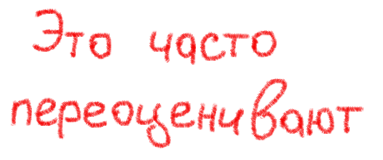 Это часто
переоценивают